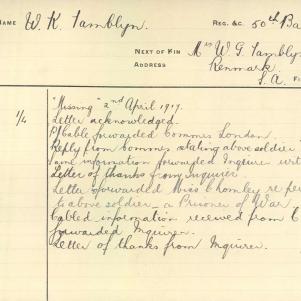 NAME W. K. Tamblyn. REG. &C. 50th Ba
NEXT OF KIN Mrs W. G. Tamblyn
ADDRESS Renmark.
S.A.
1/4 "Missing" 2nd April 1917.
Letter acknowledged.
P/Cable forwarded Commrs London.
Reply from Commrs stating above soldier
same information forwarded Inquirer
Letter of thanks from inquirer.
Letter forwarded Miss Chomley re
to above soldier, a Prisoner of War
Cabled information received from
forwarded Inquirer.
Letter of thanks from Inquirer.